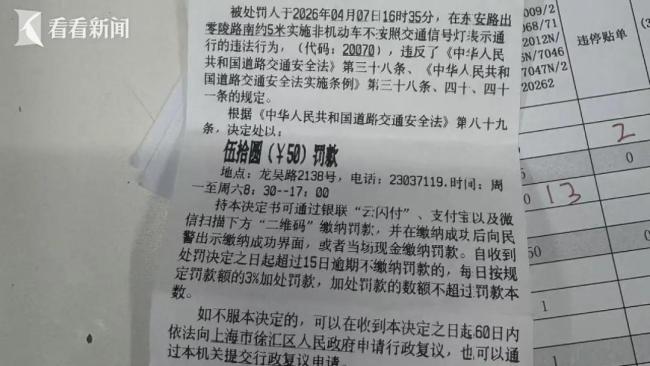 看看新闻
被处罚人于2026年04月07日16时35分，在东安路出
零陵路南约5米实施非机动车不按照交通信号灯表示通
行的违法行为，（代码：20070），违反了《中华人民
共和国道路交通安全法》第三十八条、《中华人民共和
国道路交通安全法实施条例》第三十八条、四十、四十
一条的规定。
根据《中华人民共和国道路交通安全法》第八十九
条，决定处以：
伍拾圆（￥50）罚款
地点：龙吴路2138号，电话：23037119.时间：周
一至周六8：30--17：00
持本决定书可通过银联“云闪付”、支付宝以及微
信扫描下方“二维码”缴纳罚款，并在缴纳成功后向民
警出示缴纳成功界面，或者当场现金缴纳罚款。自收到
处罚决定之日起超过15日逾期不缴纳罚款的，每日按规
定罚款额的3%加处罚款，加处罚款的数额不超过罚款本
数。
如不服本决定的，可以在收到本决定之日起60日内
依法向上海市徐汇区人民政府申请行政复议，也可以通
过本机关提交行政复议申请。
0009/2
068/71
2012N/
6N/7046
7047N/2
20262
违停贴单
2
0
0
13
50
0
1
1